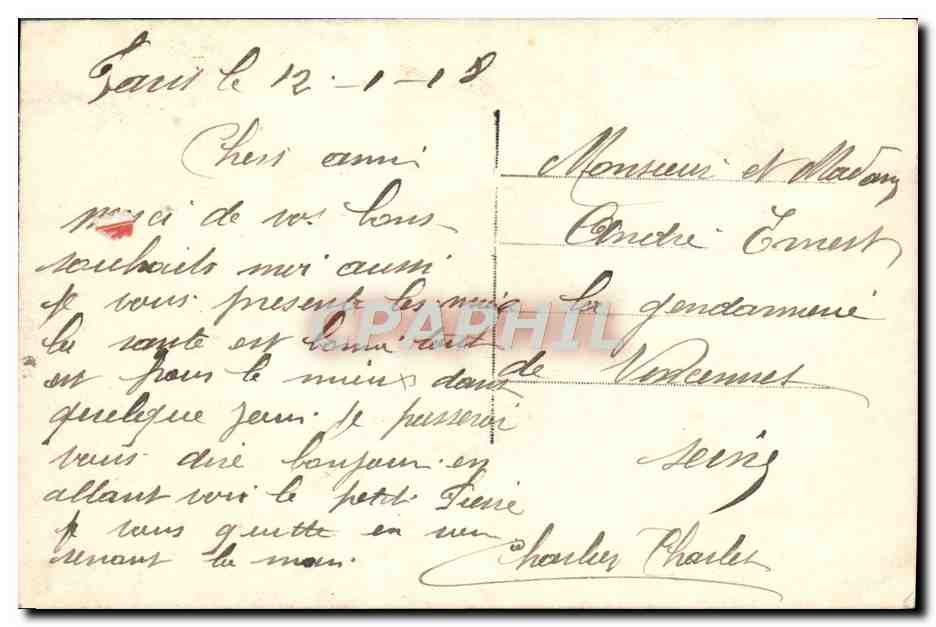 Paris le 12-1-18
Chers ami
merci de vos bons
souhaits moi aussi
je vous presente les miens
la santé est bonne tout
est pour le mieux dans
quelque jour je passerai
vous dire bonjour en
allant voir le petit Pierre
je vous quitte en vou
serrant la main.
Charlier Charles
Monsieur et Madame
André Ernest
a la gendarmerie
de Vincennes
Seine
CPAPHIL